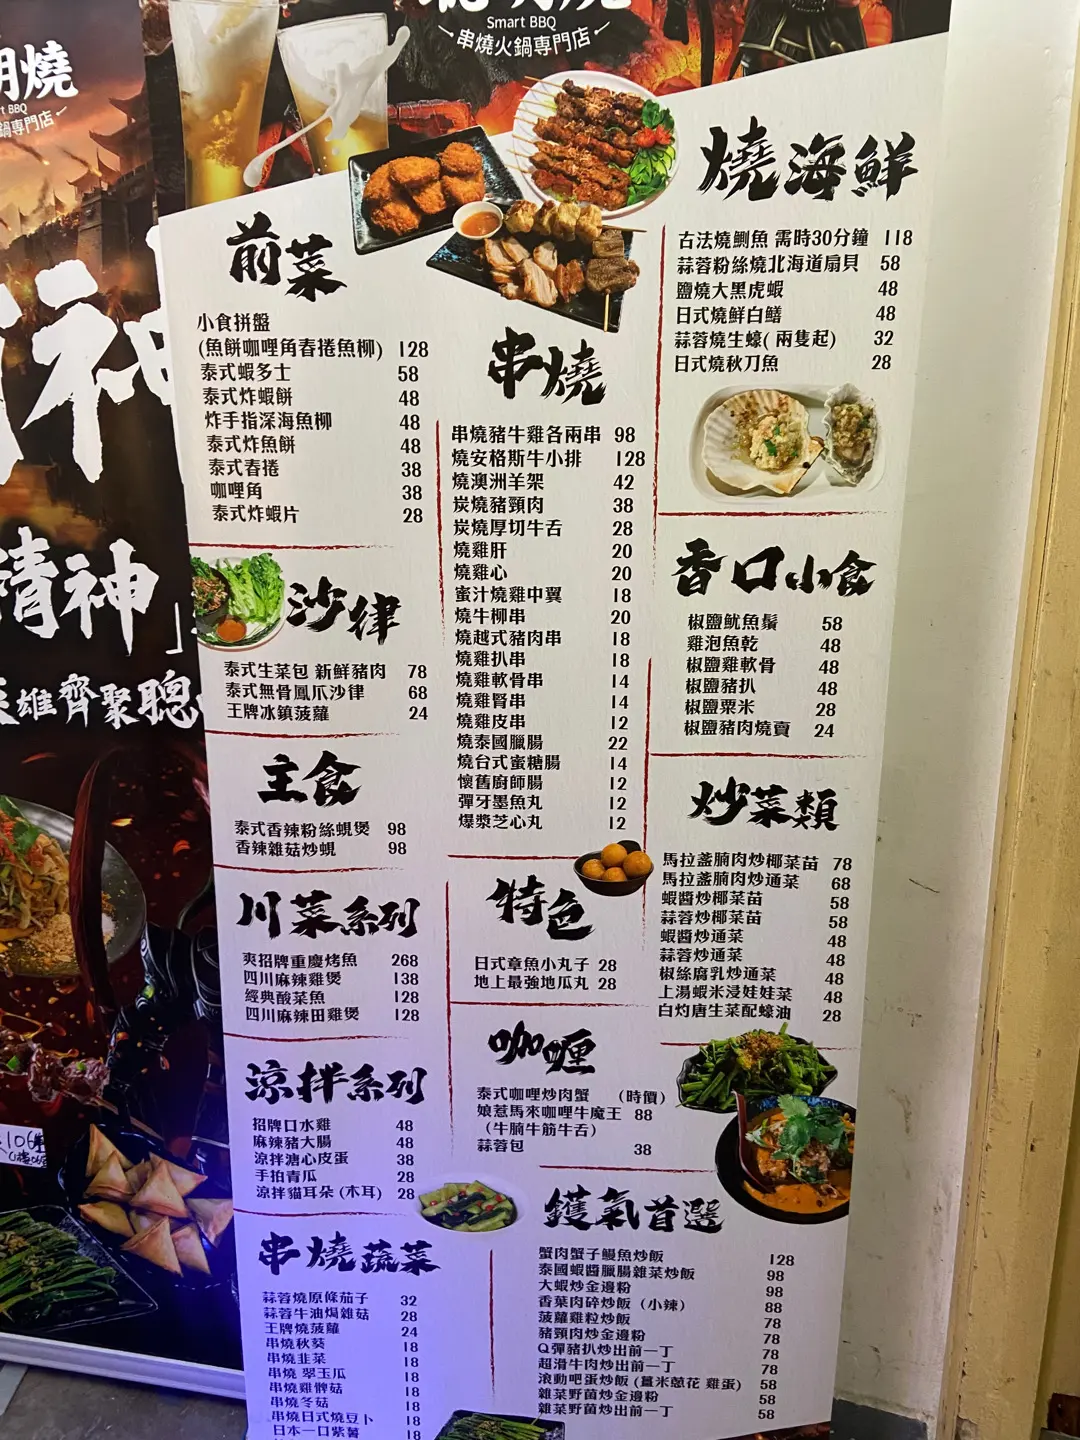 Smart BBQ
串燒火鍋專門店
燒
BBQ
鍋專門店
精神」
雄齊聚聰
前菜
小食拼盤
(魚餅咖哩角春捲魚柳) 128
泰式蝦多士 58
泰式炸蝦餅 48
炸手指深海魚柳 48
泰式炸魚餅 48
泰式春捲 38
咖哩角 38
泰式炸蝦片 28
沙律
泰式生菜包 新鮮豬肉 78
泰式無骨鳳爪沙律 68
王牌冰鎮菠蘿 24
主食
泰式香辣粉絲蜆煲 98
香辣雜菇炒蜆 98
川菜系列
爽招牌重慶烤魚 268
四川麻辣雞煲 138
經典酸菜魚 128
四川麻辣田雞煲 128
涼拌系列
招牌口水雞 48
麻辣豬大腸 48
涼拌溏心皮蛋 38
手拍青瓜 28
涼拌貓耳朵 (木耳) 28
串燒蔬菜
蒜蓉燒原條茄子 32
蒜蓉牛油焗雜菇 28
王牌燒菠蘿 24
串燒秋葵 18
串燒韭菜 18
串燒 翠玉瓜 18
串燒雞髀菇 18
串燒冬菇 18
串燒日式燒豆卜 18
日本一口紫薯 18
串燒
串燒豬牛雞各兩串 98
燒安格斯牛小排 128
燒澳洲羊架 42
炭燒豬頸肉 38
炭燒厚切牛舌 28
燒雞肝 20
燒雞心 20
蜜汁燒雞中翼 18
燒牛柳串 20
燒越式豬肉串 18
燒雞扒串 18
燒雞軟骨串 14
燒雞腎串 14
燒雞皮串 12
燒泰國臘腸 22
燒台式蜜糖腸 14
懷舊廚師腸 12
彈牙墨魚丸 12
爆漿芝心丸 12
特色
日式章魚小丸子 28
地上最強地瓜丸 28
咖喱
泰式咖哩炒肉蟹 (時價)
娘惹馬來咖哩牛魔王 88
(牛腩牛筋牛舌)
蒜蓉包 38
鑊氣首選
蟹肉蟹子鰻魚炒飯 128
泰國蝦醬臘腸雜菜炒飯 98
大蝦炒金邊粉 98
香葉肉碎炒飯 (小辣) 88
菠蘿雞粒炒飯 78
豬頸肉炒金邊粉 78
Q彈豬扒炒出前一丁 78
超滑牛肉炒出前一丁 78
滾動吧蛋炒飯 (薑米蔥花 雞蛋) 58
雜菜野菌炒金邊粉 58
雜菜野菌炒出前一丁 58
燒海鮮
古法燒鰂魚 需時30分鐘 118
蒜蓉粉絲燒北海道扇貝 58
鹽燒大黑虎蝦 48
日式燒鮮白鱔 48
蒜蓉燒生蠔( 兩隻起) 32
日式燒秋刀魚 28
香口小食
椒鹽魷魚鬚 58
雞泡魚乾 48
椒鹽雞軟骨 48
椒鹽豬扒 48
椒鹽粟米 28
椒鹽豬肉燒賣 24
炒菜類
馬拉盞腩肉炒椰菜苗 78
馬拉盞腩肉炒通菜 68
蝦醬炒椰菜苗 58
蒜蓉炒椰菜苗 58
蝦醬炒通菜 48
蒜蓉炒通菜 48
椒絲腐乳炒通菜 48
上湯蝦米浸娃娃菜 48
白灼唐生菜配蠔油 28